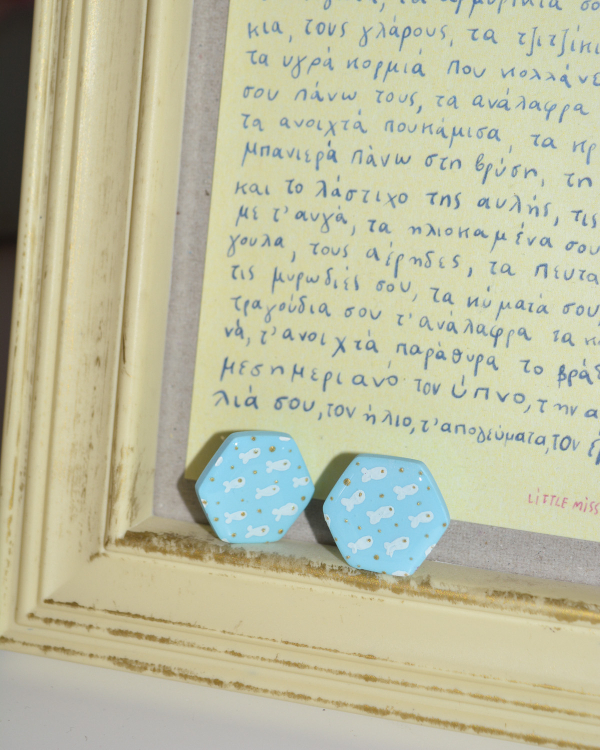 κια, τους γλάρους, τα τζιτζίκι
τα υγρά κορμιά που κολλάνε
σου πάνω τους, τα ανάλαφρα
τα ανοιχτά πουκάμισα, τα κρ
μπανιερά πάνω στη βρύση, τη
και το λάστιχο της αυλής, τις
με τ'αυγά, τα ηλιοκαμένα σου
γουλα, τους αέρηδες, τα πευτα
τις μυρωδιές σου, τα κύματά σου
τραγούδια σου τ'ανάλαφρα τα κ
νά, τ'ανοιχτά παράθυρα το βρά
μεσημεριανό τον ύπνο, την α
λιά σου, τον ήλιο, τ'απογεύματα, τον
LiTTLE MiSS